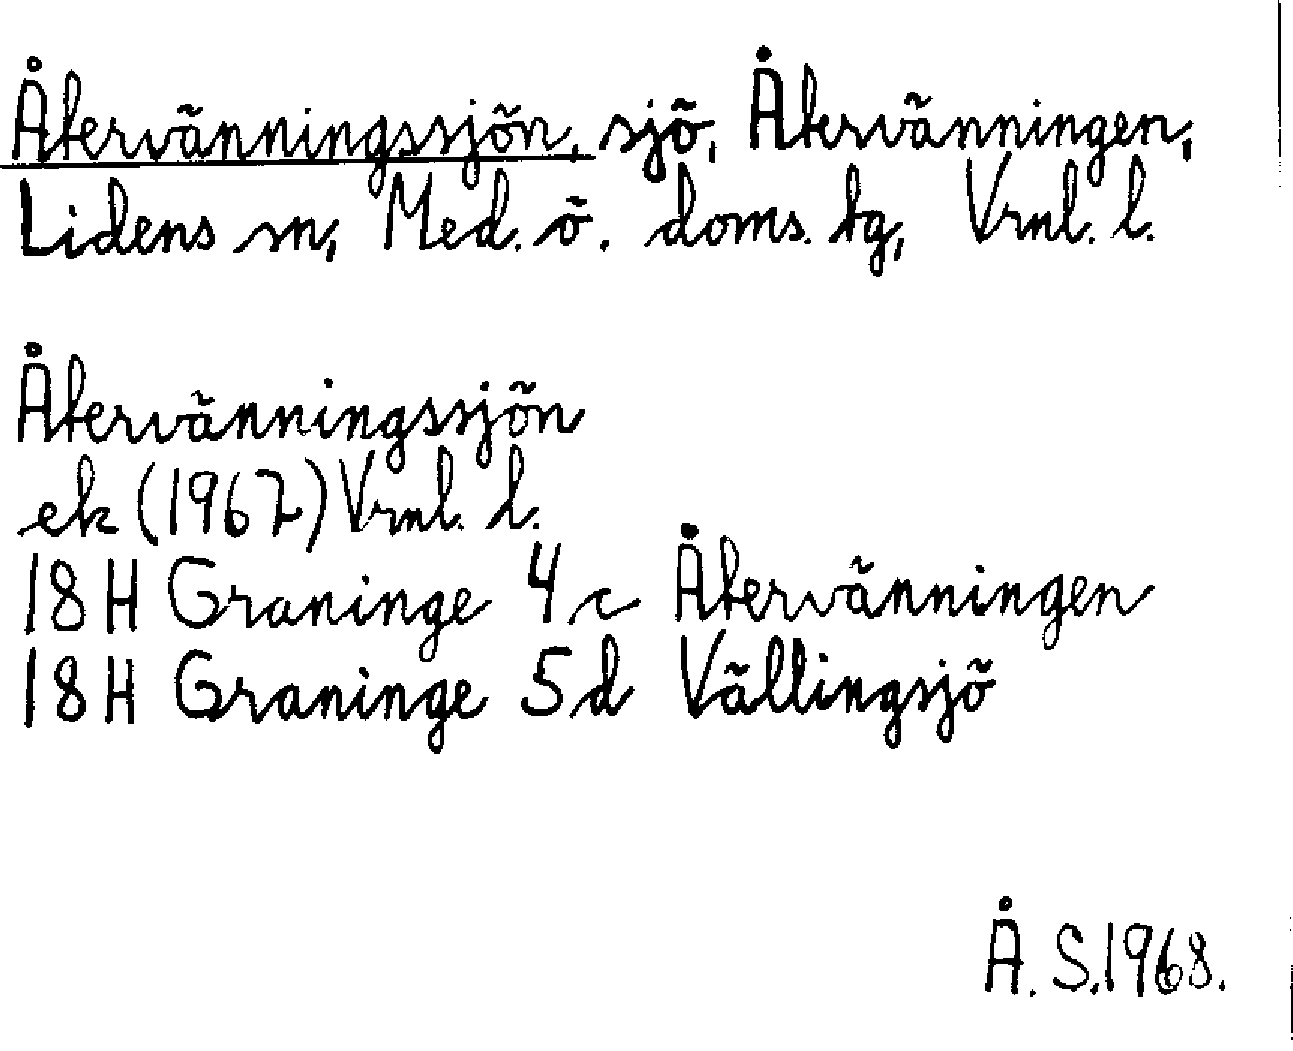 Återvänningssjön, sjö, Återvänningen,
Lidens sn, Med. ö. doms. tg, Vrnl. l.
Återvänningssjön
ek (1967) Vrnl. l.
18H Graninge 4c Återvänningen
18H Graninge 5d Vällingsjö
Å. S. 1968.